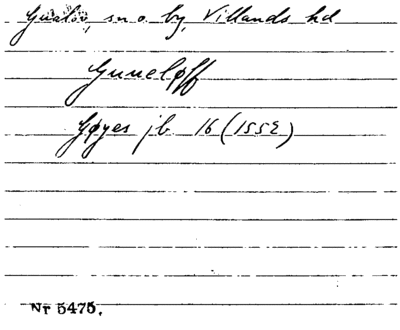 Gualöv, sn o by, Villands hd
Guneløff
Gøyes jb 16 (1552)
Nr 5475.